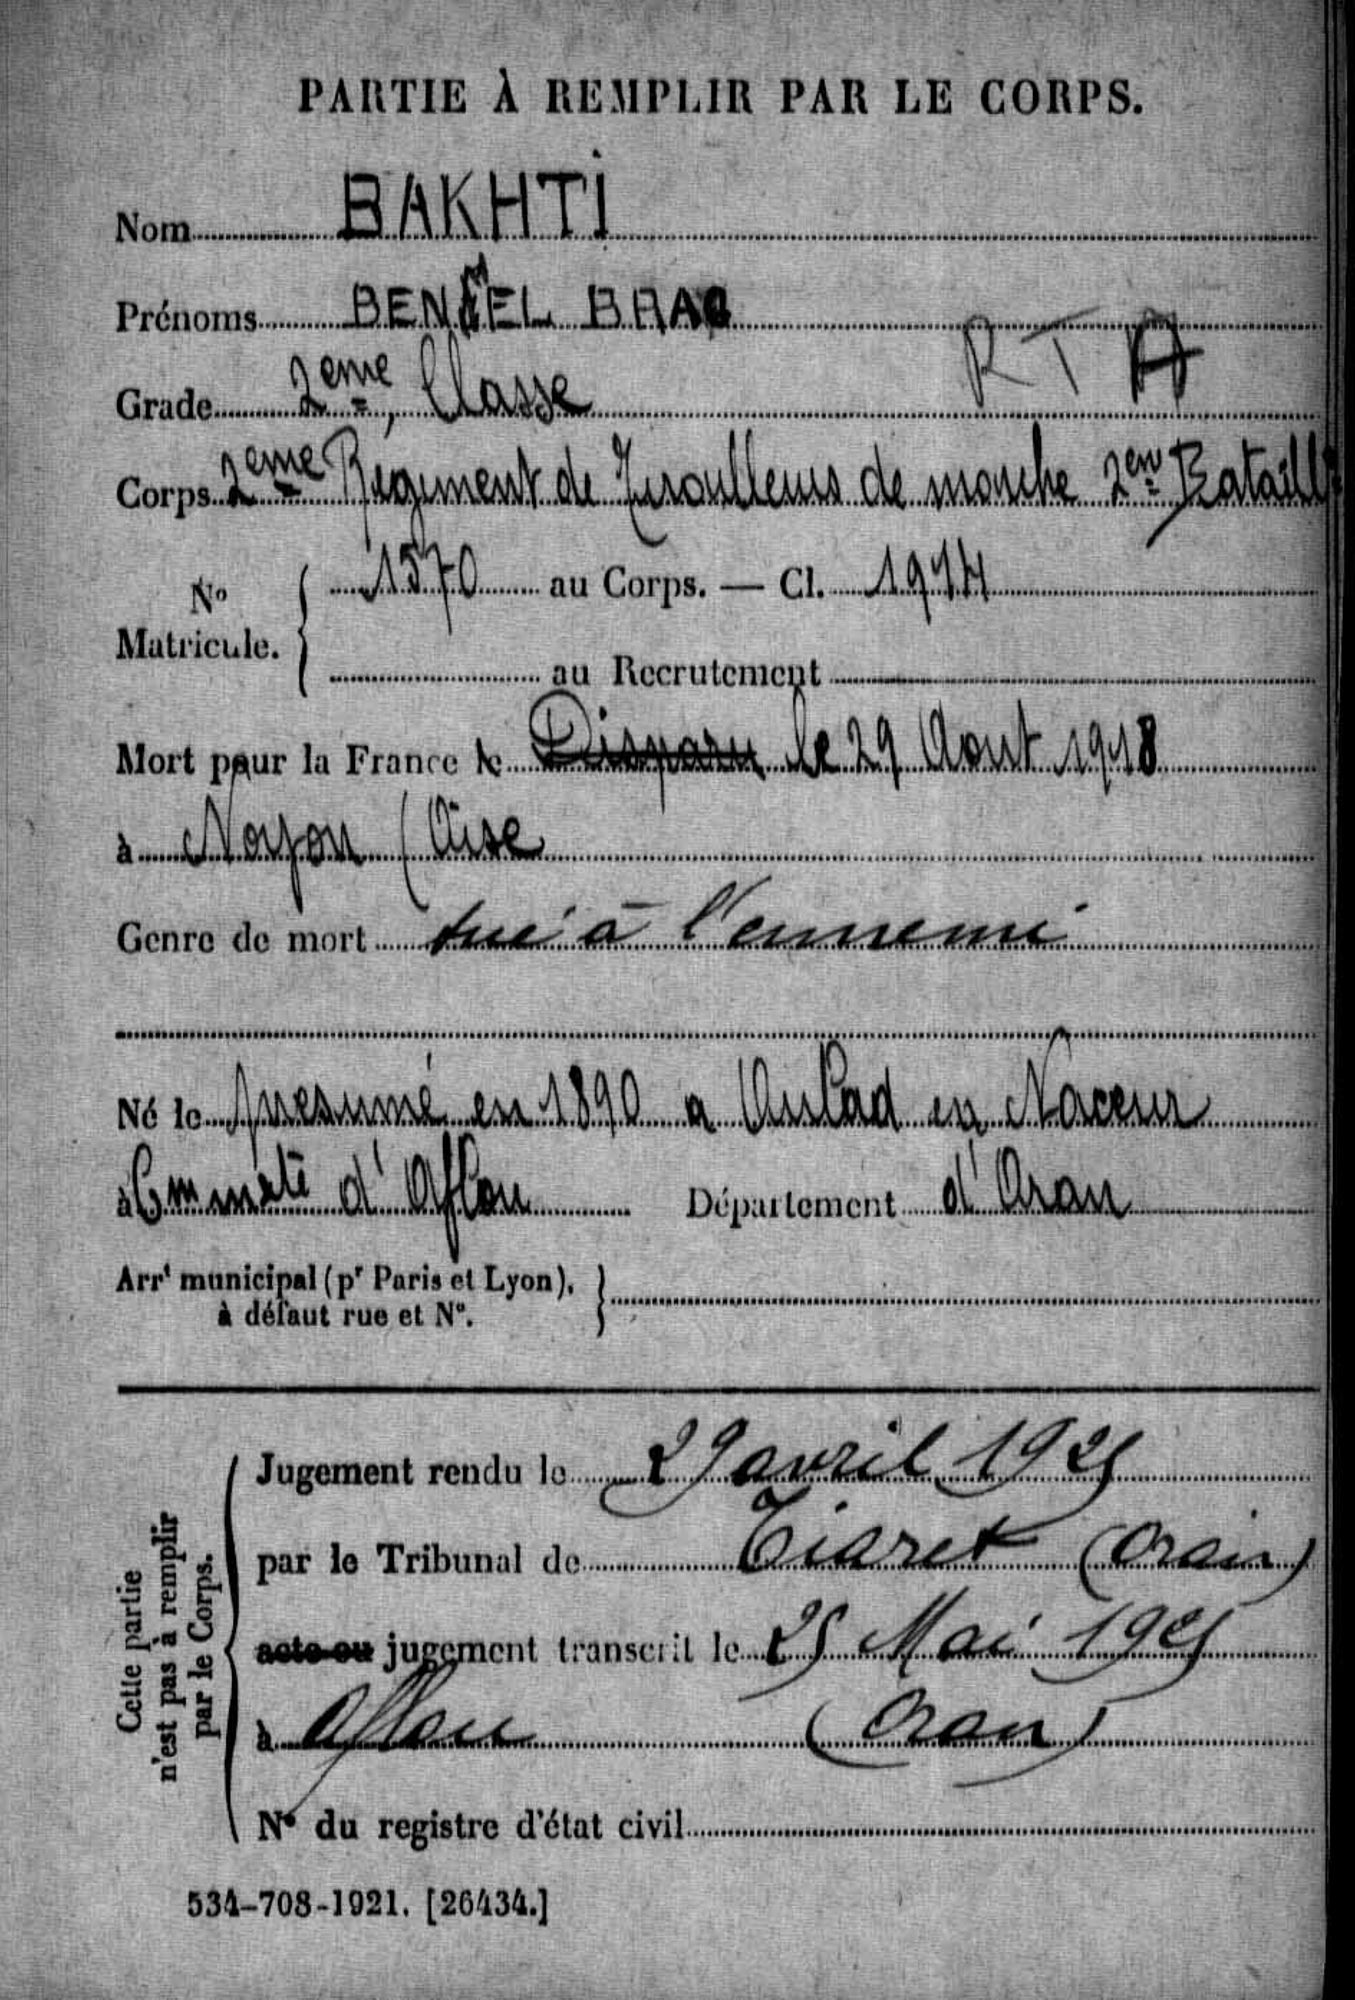 PARTIE À REMPLIR PAR LE CORPS.
Nom BAKHTI
Prénoms BEN EL
R T A
Grade 2eme Classe
Corps 2eme Régiment de Tirailleurs de marche 2em Bataill
No Matricule. 1570 au Corps. — Cl. 1914
au Recrutement
Mort pour la France le Disparu le 29 Aout 1918
à Noyon (Oise
Genre de mort tué à l'ennemi
Né le presumé en 1890 a Oulad en Naceur
à Cm mixte d'Aflou Département d'Oran
Arrt municipal (pr Paris et Lyon), à défaut rue et No.
Cette partie n'est pas à remplir par le Corps.
Jugement rendu le 29 avril 1925
par le Tribunal de Tiaret (Oran)
acte ou jugement transcrit le 25 Mai 1925
à Aflou (Oran)
No du registre d'état civil
534-708-1921. [26434.]